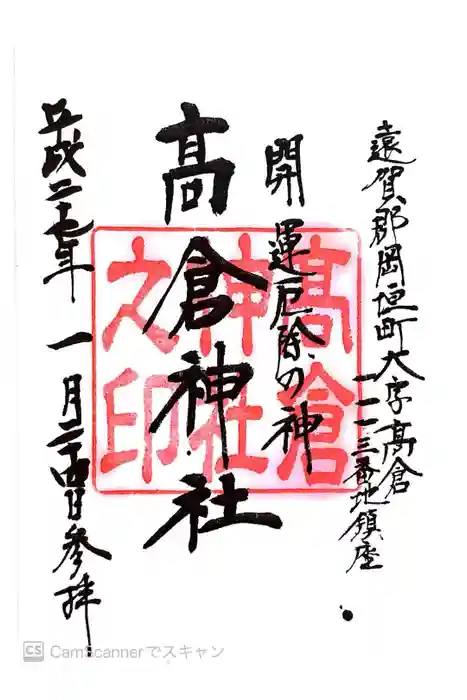 遠賀郡岡垣町大字高倉
一一一三番地鎮座
開運厄除の神
高倉神社
平成二十七年一月二十四日参拝
髙倉
神社
之印
CS CamScannerでスキャン